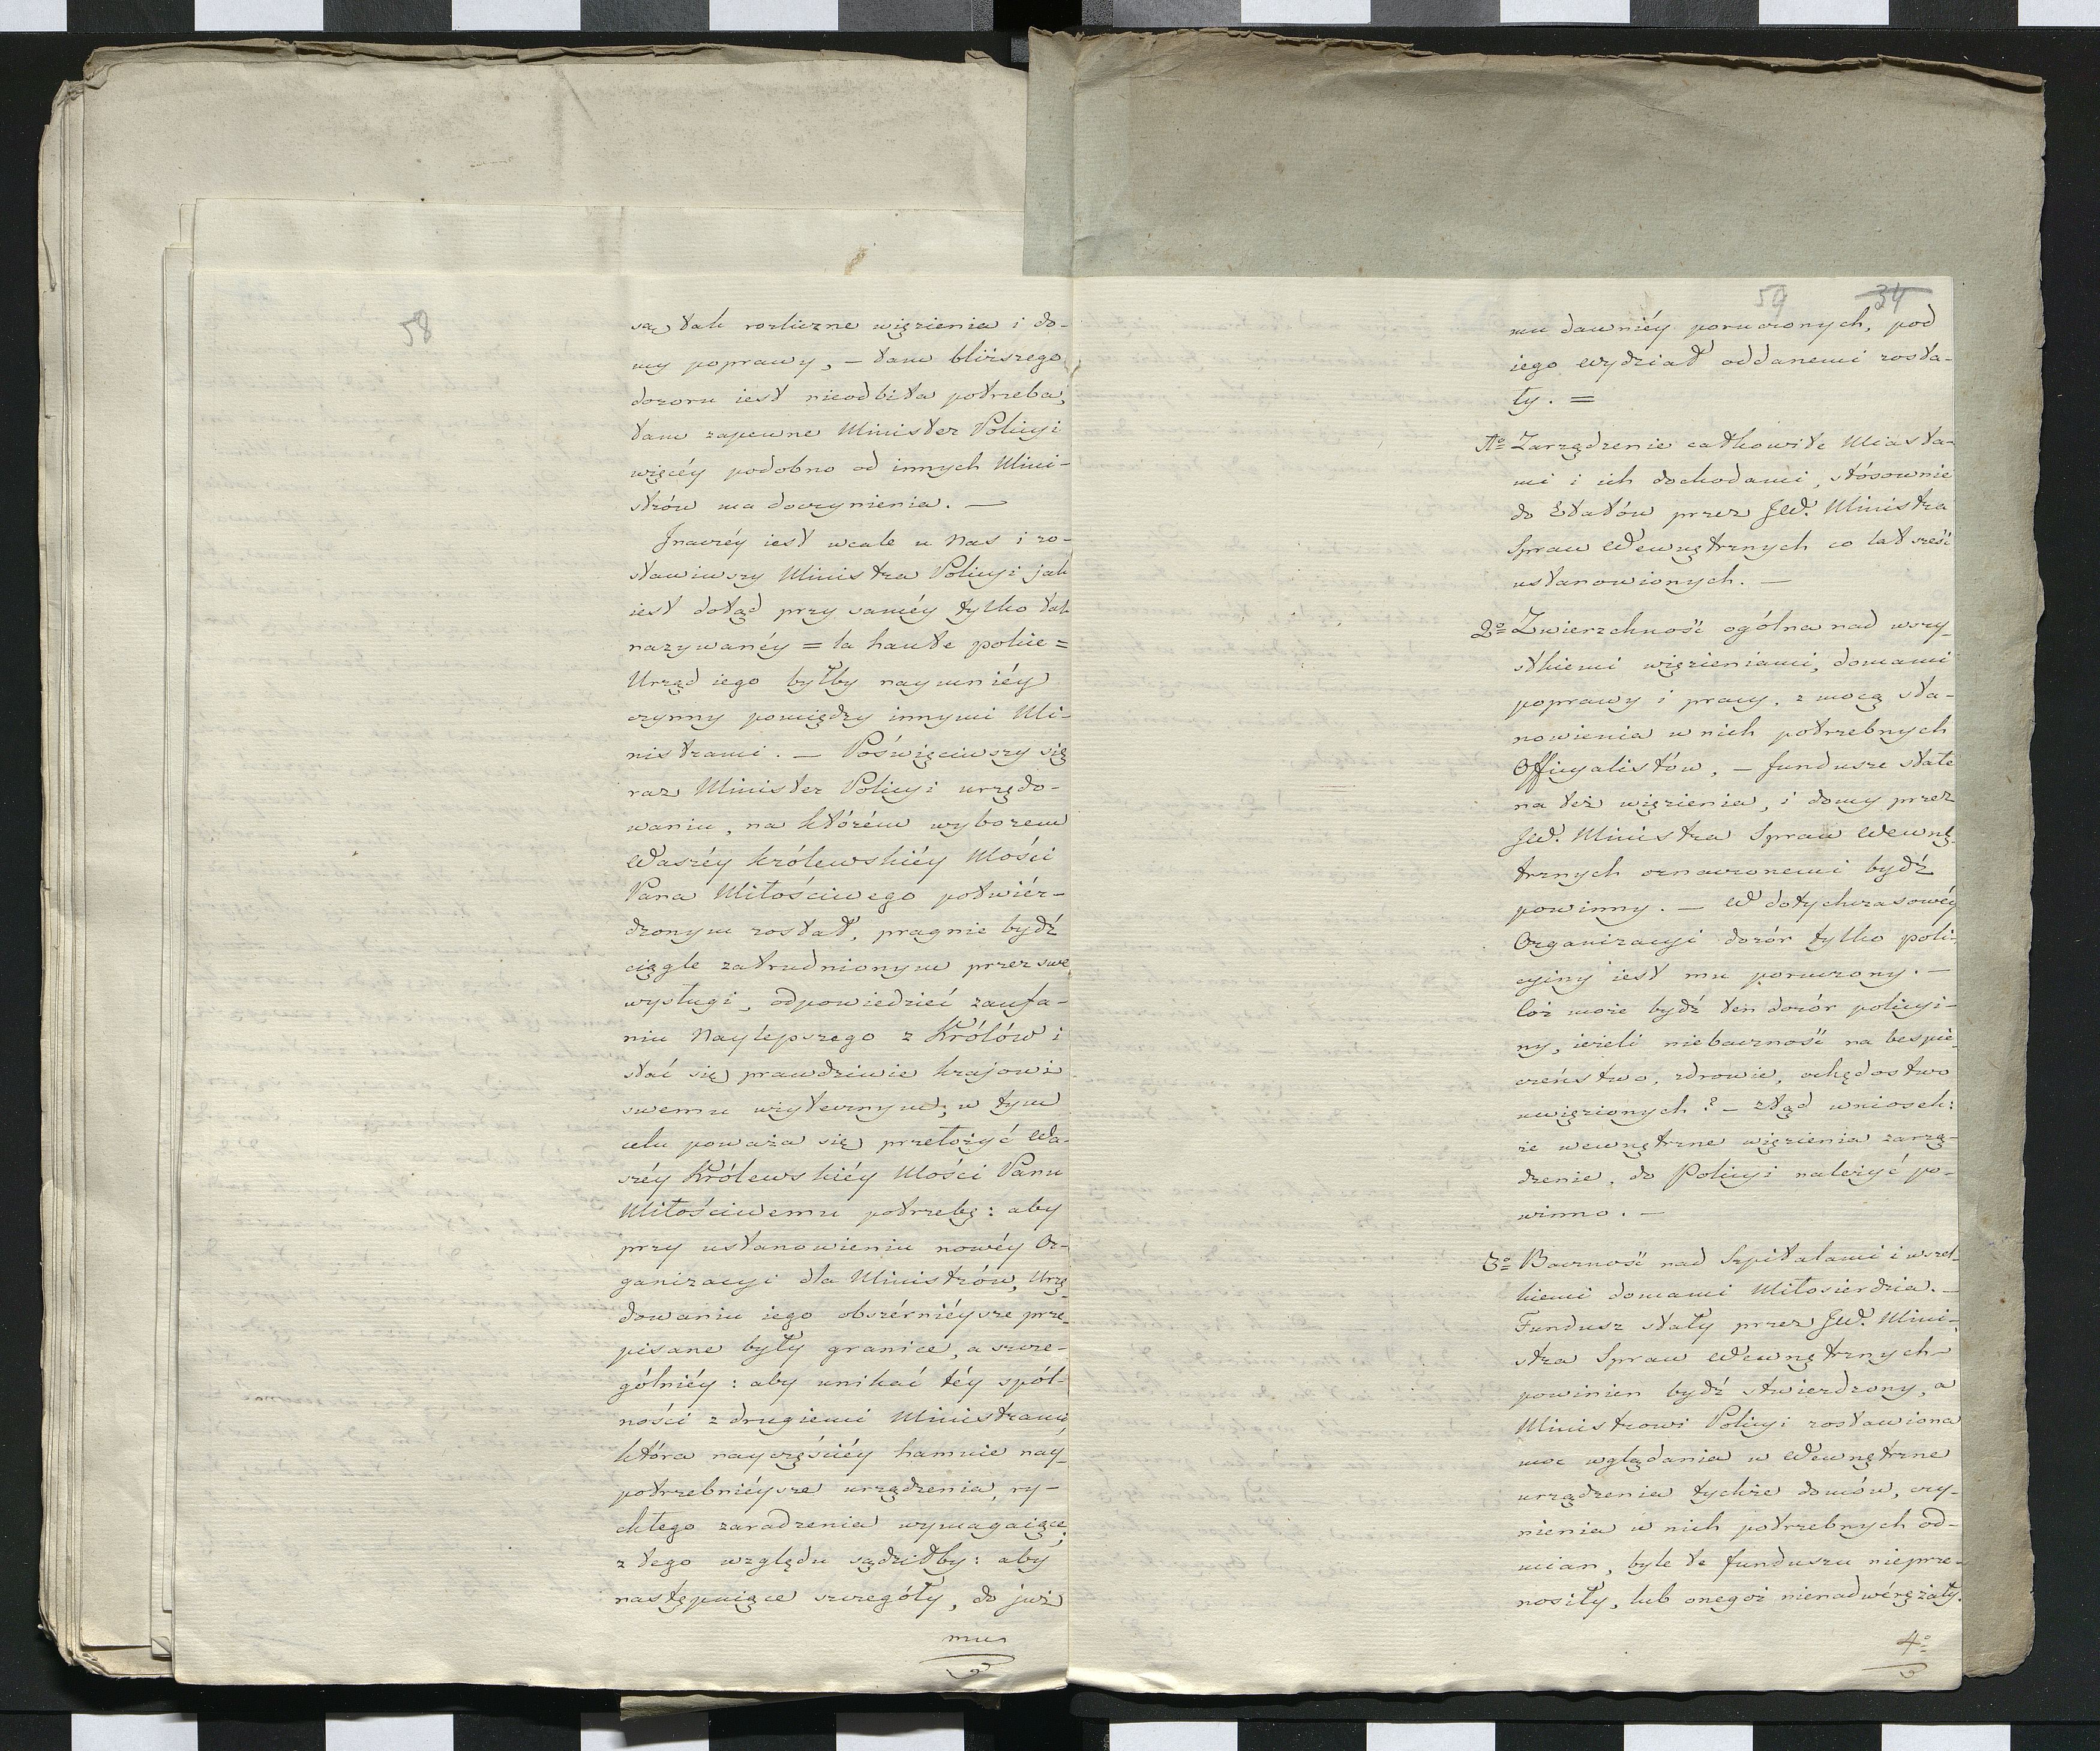 58
są tak rozliczne więzienia i do-
my poprawy, – tam bliższego
dozoru iest nieodbita potrzeba,
tam zapewne Minister Policyi
więcéy podobno od innych Mini-
strów ma doczynienia. —
Jnaczéy iest wcale u Nas i zo-
stawiwszy Ministra Policyi jak
iest dotąd przy saméy tylko tak
nazywanéy = la haute police =
Urząd iego byłby naymniéy
czynny pomiędzy innymi Mi-
nistrami. — Poświęciwszy się
raz Minister Policyi urzędo-
waniu, na którém wyborem
Waszéy Królewskiéy Mości
Pana Miłościwego potwiér-
dzonym został, pragnie bydź
ciągle zatrudnionym przez swe
wysługi, odpowiedzieć zaufa-
niu Naylepszego z Królów i
stać się prawdziwie krajowi
swemu użytecznym; w tym
celu poważa się przełożyć Wa-
széy Królewskiéy Mości Panu
Miłościwemu potrzebę: aby
przy ustanowieniu nowéy Or-
ganizacyi dla Ministrów, Urzę-
dowaniu iego obszérniéysze prze-
pisane były granice, a szcze-
gólniéy: aby unikać téy spól-
ności z drugiemi Ministrami,
która nayczęściéy hamuie nay-
potrzebniéysze urządzenia, ry-
chłego zaradzenia wymagaiące,
z tego względu sądziłby: aby
następuiące szczegóły, do już
mu
59 34
mu dawniéy poruczonych, pod
iego wydział oddanemi zosta-
ły. =
1o Zarządzenie całkowite Miasta-
mi i ich dochodami, stósownie
do Etatów przez JW. Ministra
Spraw Wewnętrznych co lat sześć
ustanowionych. —
2o Zwierzchność ogólna nad wszy-
stkiemi więzieniami, domami
poprawy i pracy, z mocą sta-
nowienia w nich potrzebnych
Officyalistów, – fundusze stałe
na też więzienia, i domy przez
JW. Ministra Spraw Wewnę-
trznych oznaczonemi bydź
powinny. — W dotychczasowéy
Organizacyi dozór tylko poli-
cyiny iest mu poruczony. —
Cóż może bydź ten dozór policyi-
ny, ieżeli niebaczność na bespie-
czeństwo, zdrowie, ochędostwo
uwięzionych? – ztąd wniosek:
że wewnętrzne więzienia zarzą-
dzenie, do Policyi należyć po-
winno. —
3o Baczność nad Szpitalami i wszel-
kiemi domami Miłosierdzia. —
Fundusz stały przez JW. Mini-
stra Spraw Wewnętrznych
powinien bydź stwierdzony, a
Ministrowi Policyi zostawiona
moc wglądania w Wewnętrzne
urządzenia tychże domów, czy-
nienia w nich potrzebnych od-
mian, byle te funduszu nieprze-
nosiły, lub onegoż nienadwérężały.
4o